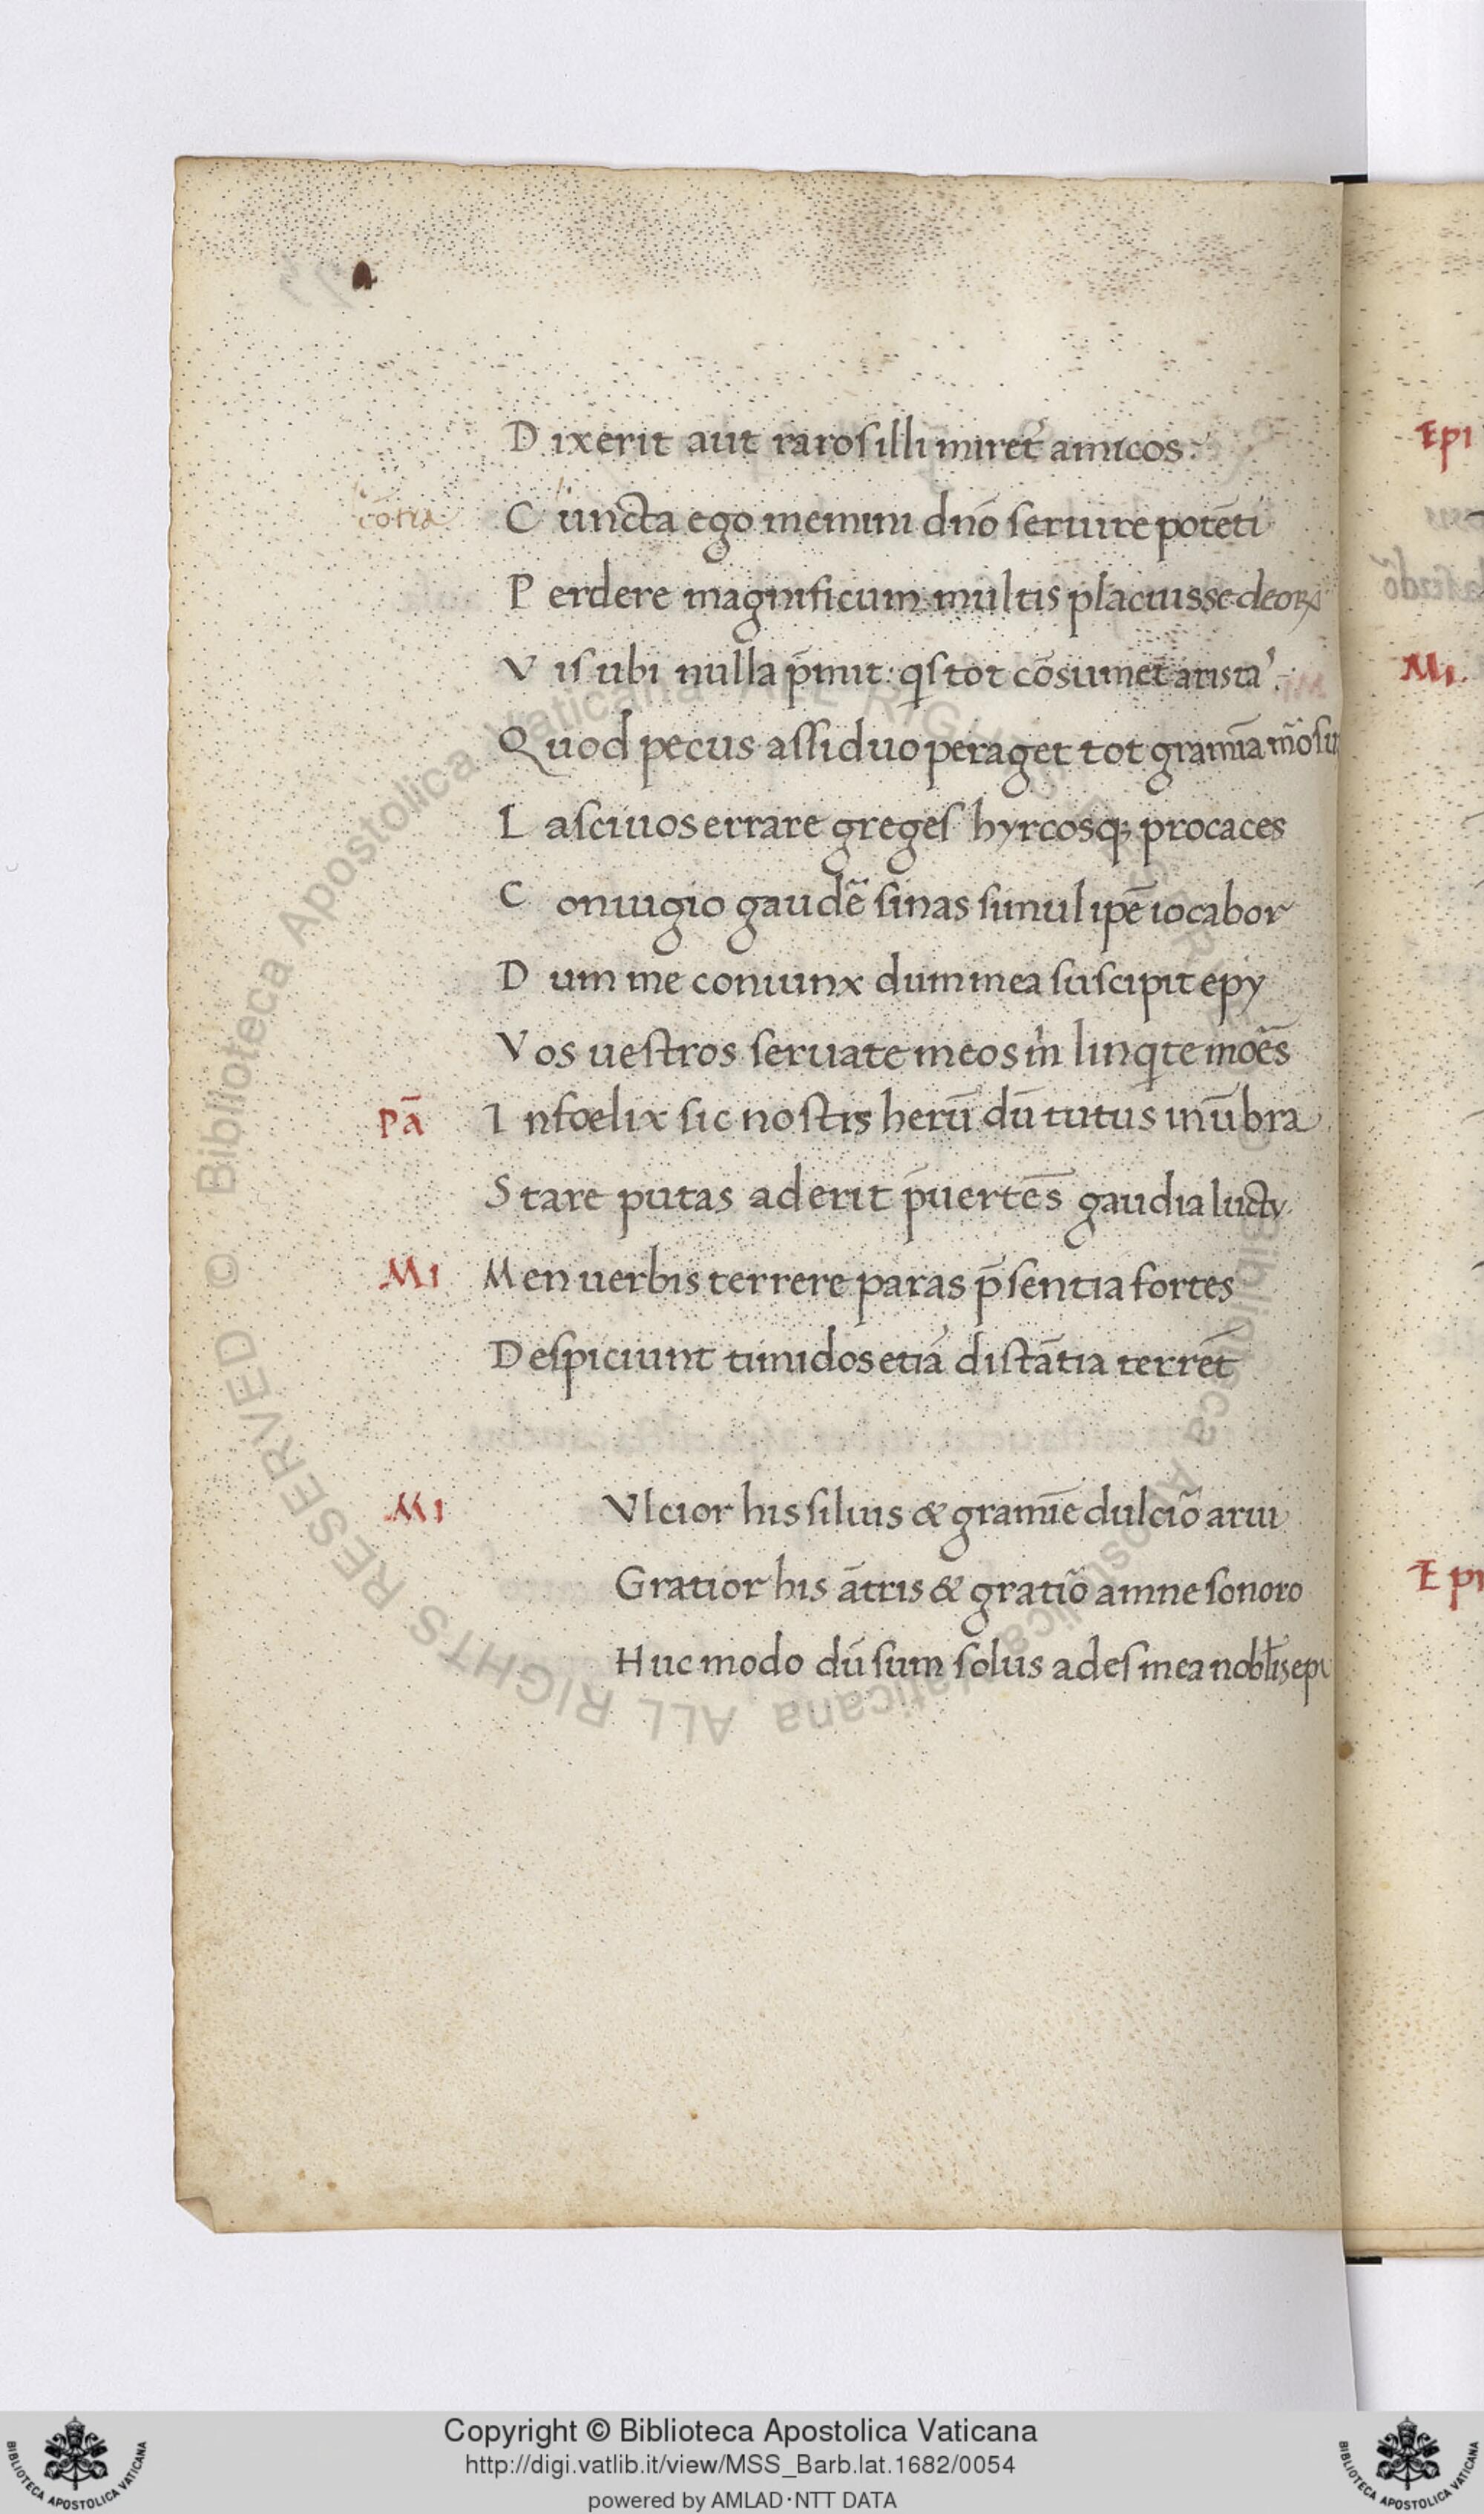 Dixerit aut raros illi miret᷑ amicos:
cōtra Cuncta ego memini dnō seruire potēti
Perdere magnificum multis placuisse deoꝝ
Vis ubi nulla p̄mit: qs tot cōsumet arista᾽.
Quod pecus assiduo peraget tot gramīa mōsu
Lasciuos errare greges hyrcosqꝫ procaces
Coniugio gaudē sinas simul ipē iocabor
Dum me coniunx dum mea suscipit epy
Vos uestros seruate meos m̍ linqte moēs
Pā Infoelix sic nostis herū dū tutus in ūbra
Stare putas aderit p̄uertēs gaudia luctꝰ
MI Men uerbis terrere paras p̄sentia fortes
Despiciunt timidos etiā distātia terrēt
MI Vlcior his siluis & gramīe dulciō arui
Gratior his ātris & gratiō amne sonoro
Huc modo dū sum solus ades mea nobl̄is epi
Epi
MI.
Epi
Biblioteca Apostolica Vaticana ALL RIGHTS RESERVED ©
Copyright © Biblioteca Apostolica Vaticana
http://digi.vatlib.it/view/MSS_Barb.lat.1682/0054
powered by AMLAD·NTT DATA
BIBLIOTECA APOSTOLICA VATICANA
BIBLIOTECA APOSTOLICA VATICANA